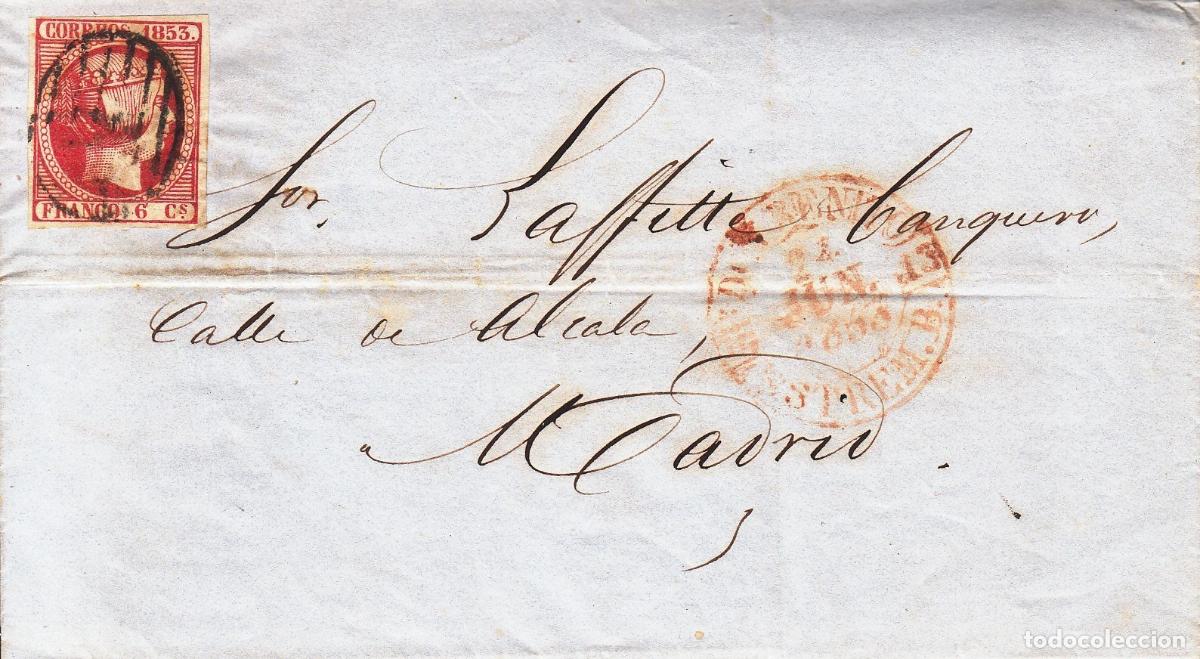 CORREOS 1853.
FRANCO 6 Cs
Sor. Laffitte banquero,
Calle de Alcala,
Madrid.
21.
JUN.
1853
ESTREM. B.
13
todocoleccion